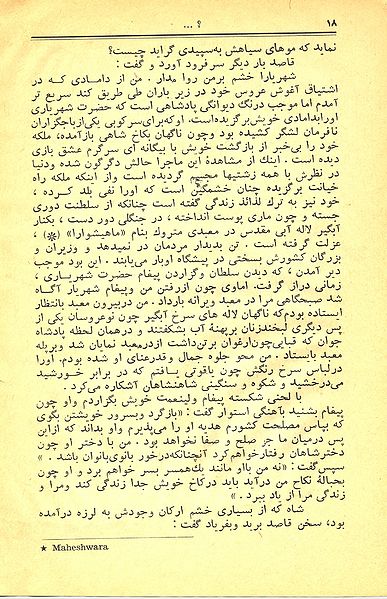 ۱۸
؟ ...
نماید که موهای سیاهش به‌سپیدی گراید چیست؟
قاصد بار دیگر سر فرود آورد و گفت :
شهریارا خشم برمن روا مدار . من از دامادی که در
اشتیاق آغوش عروس خود در زیر باران طی طریق کند سریع تر
آمدم اما موجب درنگ دیوانگی پادشاهی است که حضرت شهریاری
اورابدامادی خویش‌برگزیده‌است. اوکه‌برای‌سرکوبی یکی‌ازباجگزاران
نافرمان لشگر کشیده بود وچون ناگهان بکاخ شاهی بازآمده، ملکه
خود را بی‌خبر از بازگشت خویش با بیگانه ای سرگرم عشق بازی
دیده است . اینك از مشاهدهٔ این ماجرا حالش دگرگون شده ودنیا
در نظرش با همه زشتیها مجسم گردیده است واز اینکه ملکه راه
خیانت برگزیده چنان خشمگین است که اورا نفی بلد کرده ،
خود نیز به ترك لذائذ زندگی گفته است چنانکه از سلطنت دوری
جسته و چون ماری پوست انداخته ، در جنگلی دور دست ، بکنار
آبگیر لاله آبی مقدس در معبدی متروك بنام «ماهیشوارا» (★) ،
عزلت گرفته است . تن بدیدار مردمان در نمیدهد و وزیران و
بزرگان کشورش بسختی در پیشگاه اوبار می‌یابند . این بود موجب
دیر آمدن ، که دیدن سلطان وگزاردن پیغام حضرت شهریاری ،
زمانی دراز گرفت. اماوی چون ازرفتن من وپیغام شهریار آگاه
شد صبحگاهی مرا در معبد ویرانه بارداد . من دربیرون معبد بانتظار
ایستاده بودم‌که ناگهان لاله های سرخ آبگیر چون نوعروسان یکی از
پس دیگری لبخندزنان برپهنهٔ آب بشکفتند و درهمان لحظه پادشاه
جوان که قبایی‌چون‌ارغوان برتن‌داشت ازدرمعبد نمایان شد وبرپله
معبد بایستاد . من محو جلوه جمال وقدرعنای او شده بودم. اورا
درلباس سرخ رنگش چون یاقوتی یافتم که در برابر خورشید
می‌درخشید و شکوه و سنگینی شاهنشاهان آشکاره می‌کرد.
با لحنی شکسته پیغام ولینعمت خویش بگزاردم واو چون
پیغام بشنید بآهنگی استوار گفت : «بازگرد وبسرور خویشتن بگوی
که بپاس مصلحت کشورم هدیه او را می‌پذیرم واو بداند که ازاین
پس درمیان ما جز صلح و صفا نخواهد بود . من با دختر او چون
دخترشاهان رفتارخواهم‌کرد آنچنانکه‌درخور بانوی‌بانوان باشد . »
سپس‌گفت : «نه من بااو مانند یك‌همسر بسر خواهم برد و او چون
بحبالهٔ نکاح من درآید باید درکاخ خویش جدا زندگی کند ومرا و
زندگی مرا از یاد ببرد . »
شاه که از بسیاری خشم ارکان وجودش به لرزه درآمده
بود، سخن قاصد برید وبفریاد گفت :
★ Maheshwara